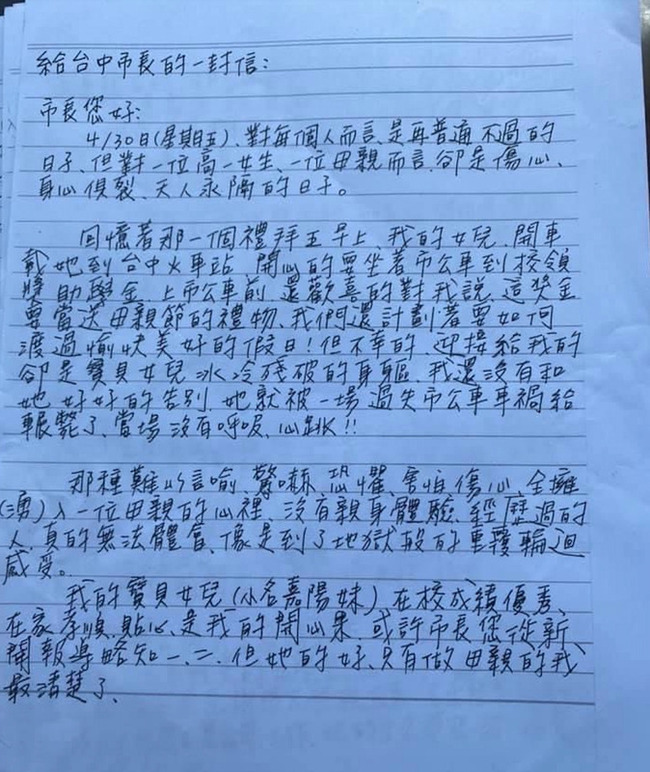 給台中市長的一封信:
市長您好:
4/30日(星期五)、對每個人而言、是再普通不過的
日子、但對一位高一女生、一位母親而言、卻是傷心、
身心俱裂、天人永隔的日子。
回憶著那一個禮拜五早上、我的女兒、開車
載她到台中火車站、開心的要坐著市公車到校領
獎助學金、上市公車前、還歡喜的對我說、這獎金
要當送母親節的禮物、我們還計劃著要如何
渡過愉快美好的假日!但不幸的、迎接給我的
卻是寶貝女兒冰冷殘破的身軀、我還沒有和
她好好的告別、她就被一場過失市公車車禍給
輾斃了、當場沒有呼吸、心跳!!
那種難以言喻、驚嚇、恐懼、害怕、傷心、全擁
(湧)入一位母親的心裡、沒有親身體驗、經歷過的
人、真的無法體會、像是到了地獄般的重覆輪迴
感受。
我的寶貝女兒(小名嘉陽妹)、在校成績優秀、
在家孝順、貼心、是我的開心果、或許市長您從新
聞報導略知一、二、但她的好、只有做母親的我
最清楚了、